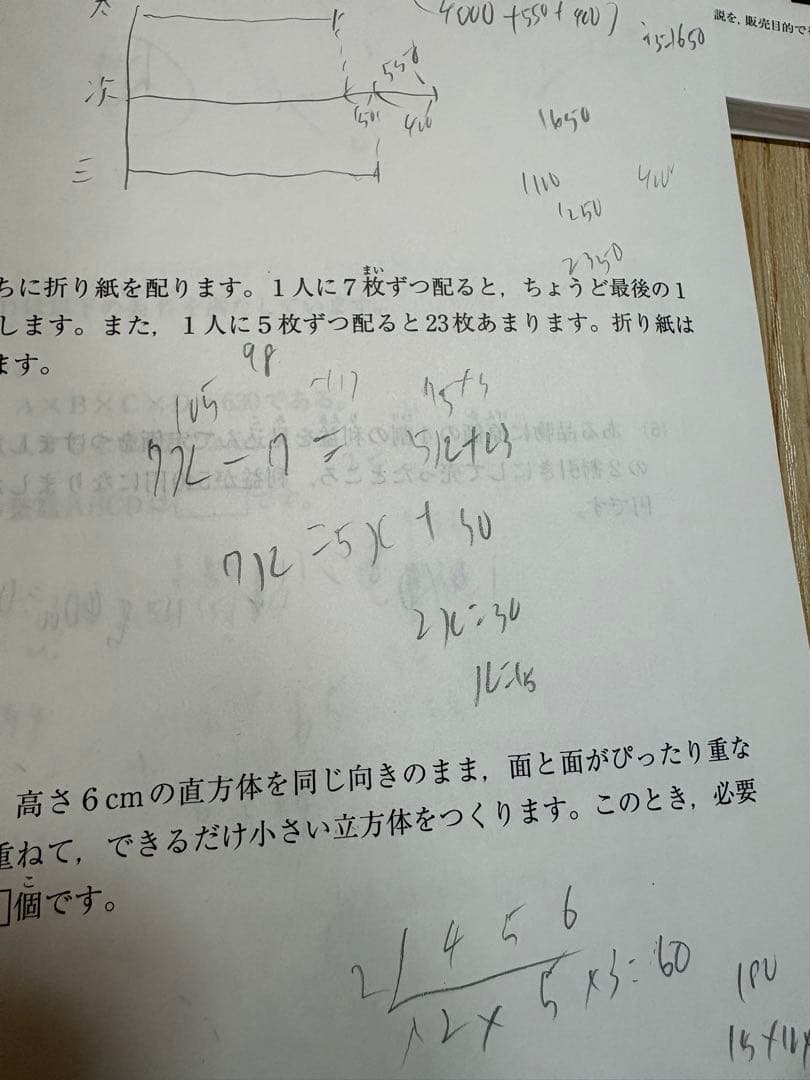 (4000+550+400)
説を,販売目的で
次
550
150
400
三
1650
1100
400
1250
2350
ちに折り紙を配ります。1人に7枚ずつ配ると,ちょうど最後の1
まい
します。また,1人に5枚ずつ配ると23枚あまります。折り紙は
ます。
98
105
7x-7=5x+23
7x=5x+30
2x=30
x=15
高さ6cmの直方体を同じ向きのまま,面と面がぴったり重な
重ねて,できるだけ小さい立方体をつくります。このとき,必要
個です。
こ
2 4 5 6
2×5×3=60
180